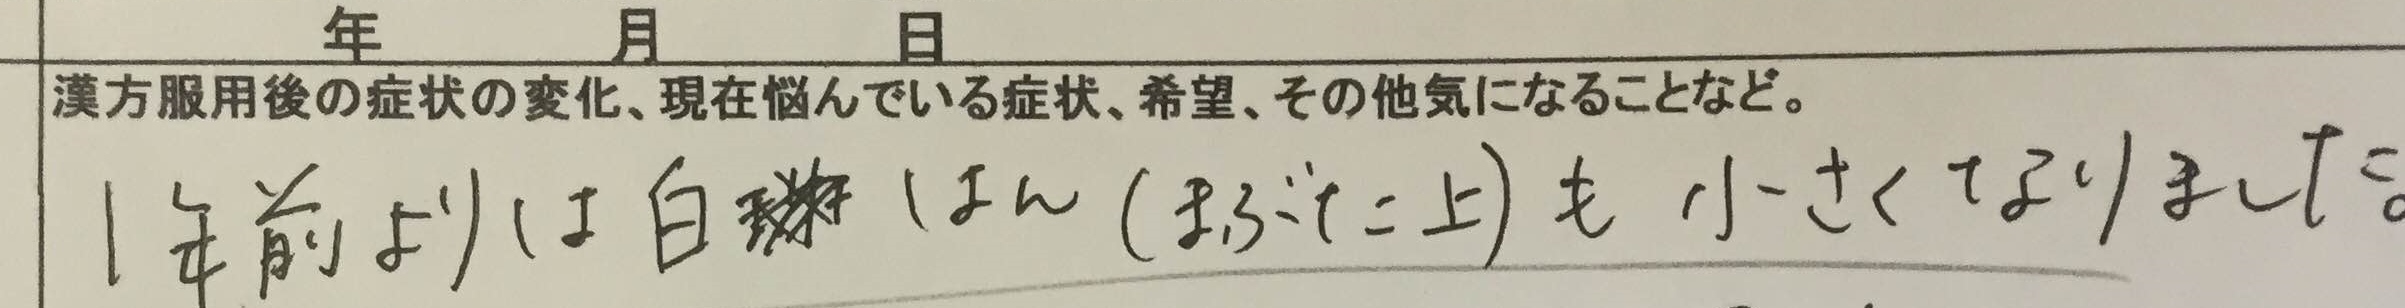 年 月 日
漢方服用後の症状の変化、現在悩んでいる症状、希望、その他気になることなど。
1年前よりは白はん(まぶた上)も小さくなりました。